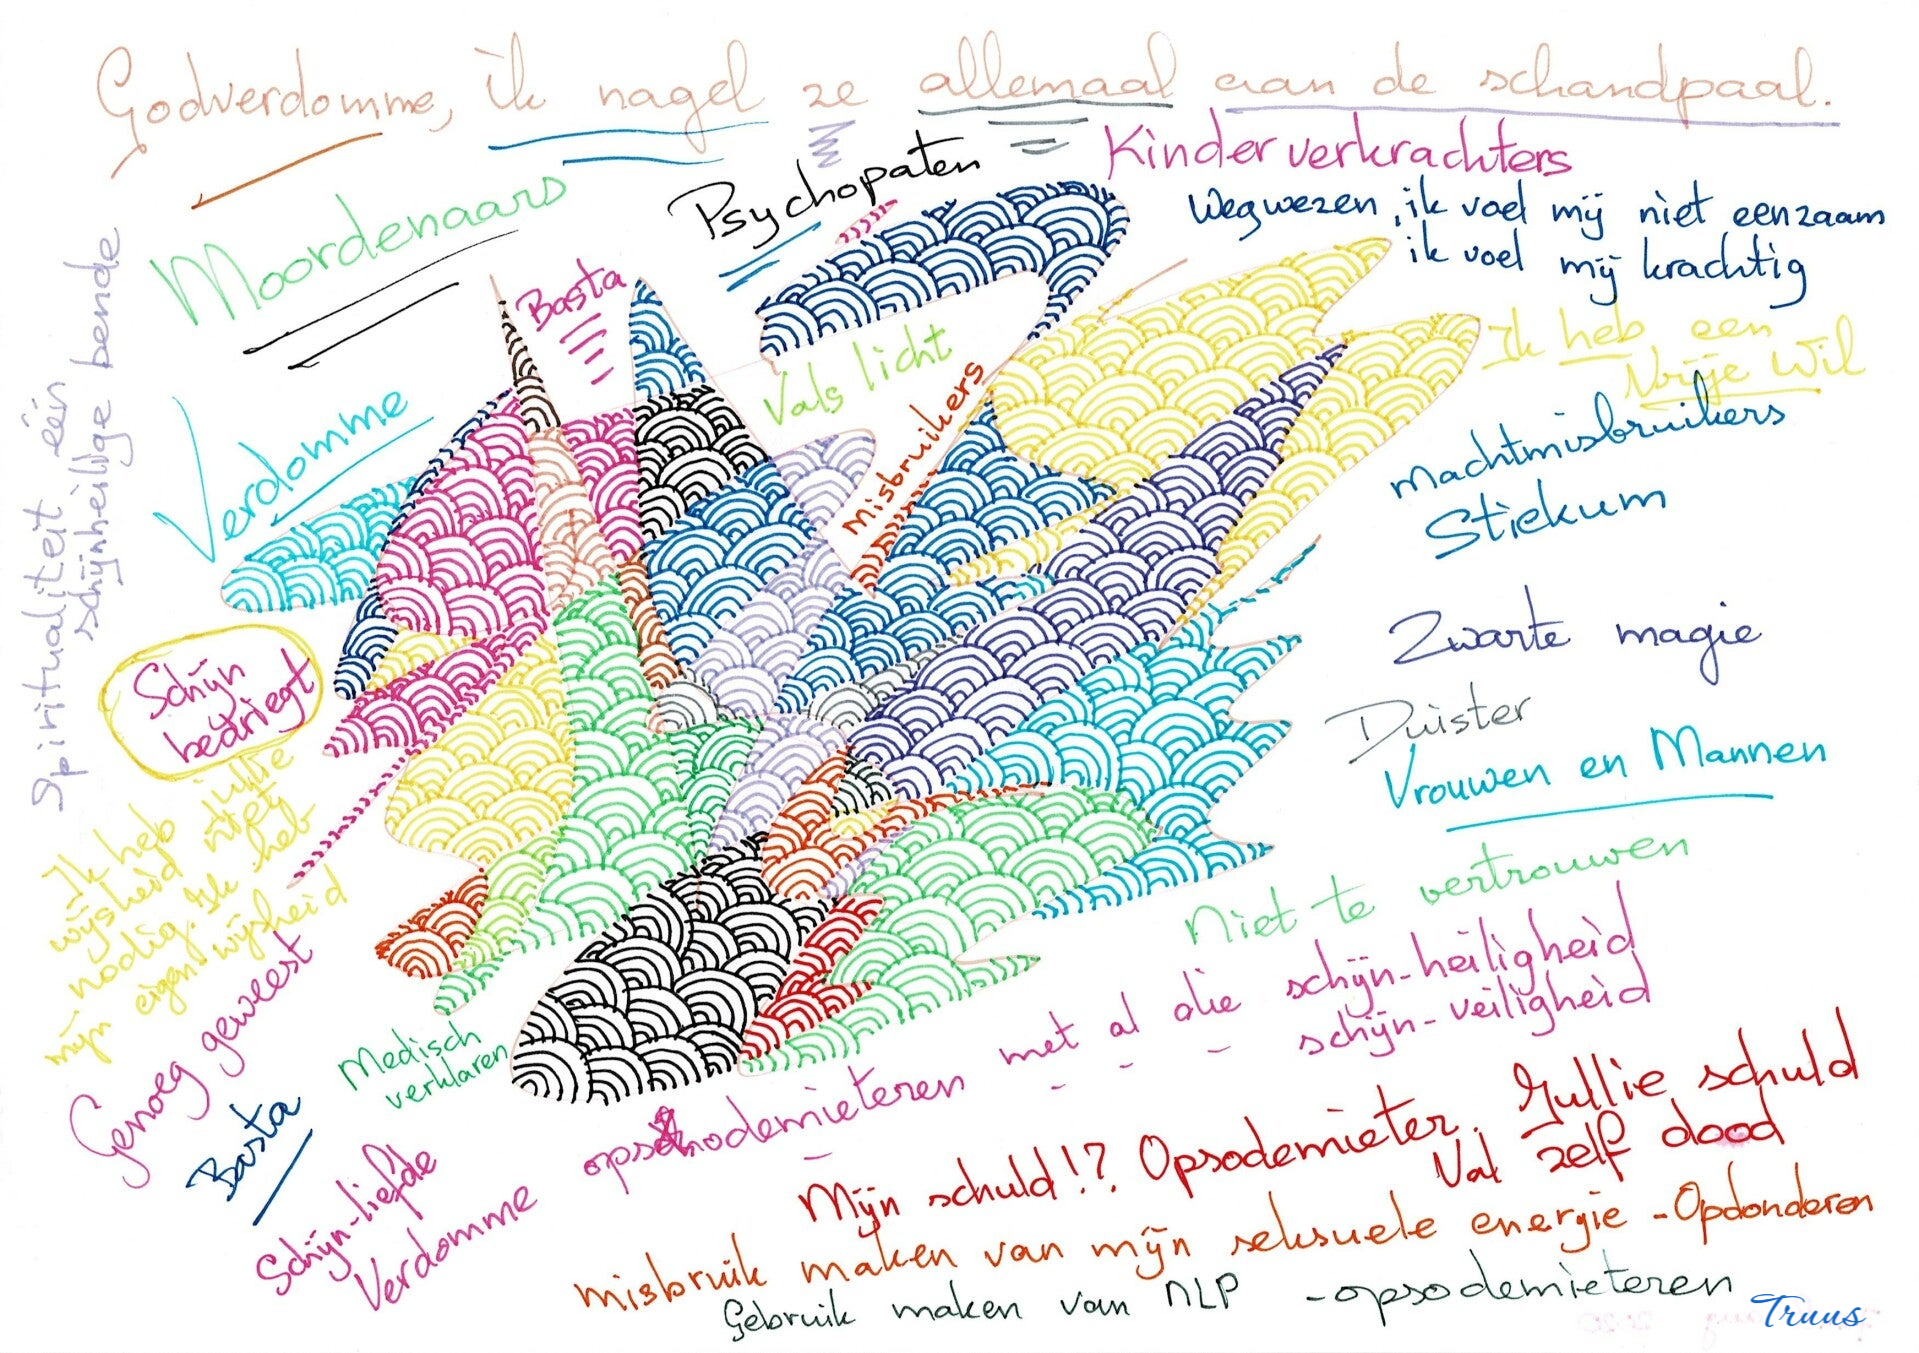 Godverdomme, ik nagel ze allemaal aan de schandpaal.
Kinderverkrachters
Psychopaten
Moordenaars
Wegwezen, ik voel mij niet eenzaam
ik voel mij krachtig
Basta
Vals licht
Ik heb een
Vrije Wil
Misbruikers
Verdomme
Machtmisbruikers
Stiekum
Spiritualiteit één
schijnheilige bende
Zwarte magie
Schijn
bedriegt
Duister
Vrouwen en Mannen
Ik heb jullie
wijsheid niet
nodig. Ik heb
mijn eigen wijsheid
Niet te vertrouwen
Genoeg geweest
Medisch
verklaren
Basta
opsodemieteren met al die schijn-heiligheid
schijn-veiligheid
Schijn-liefde
Verdomme
Mijn schuld!? Opsodemieter. Jullie schuld
Val zelf dood
misbruik maken van mijn seksuele energie - Opdonderen
Gebruik maken van NLP - opsodemieteren
Truus